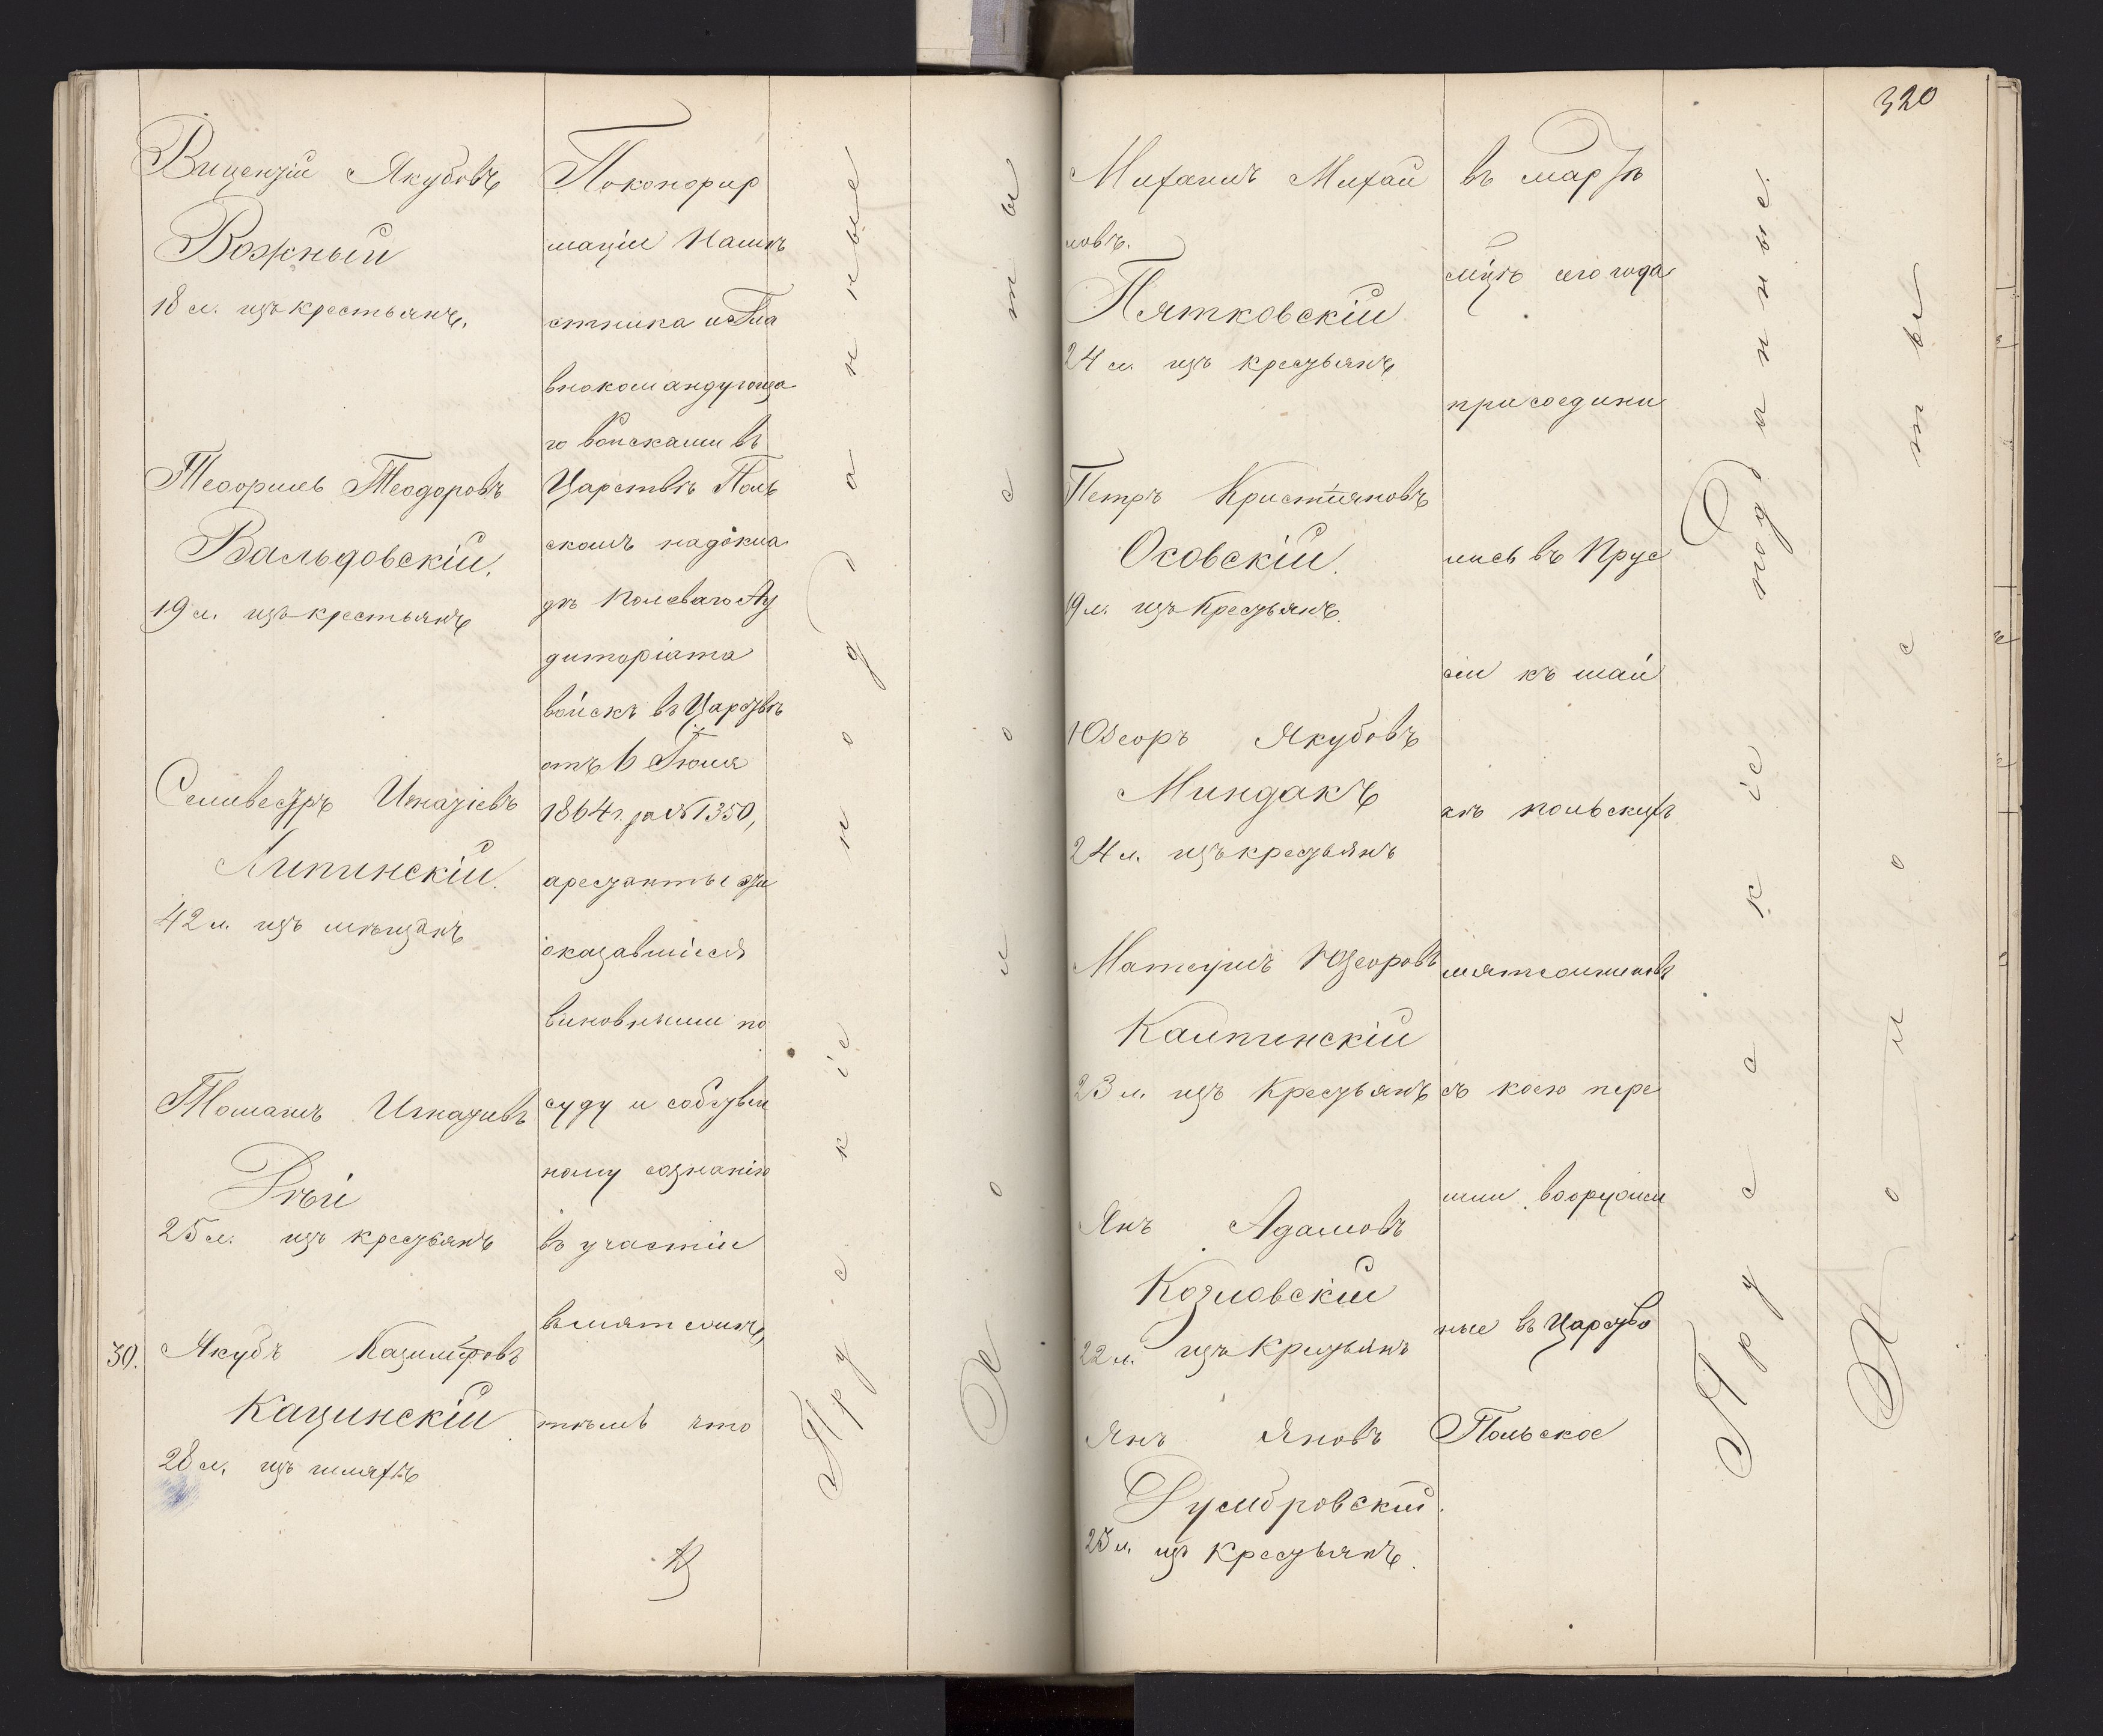 Виценжiй Якубовъ
Вожный
18 л. изъ крестьянъ.
Теофиль Теодоровъ
Вальдовскій.
19 л. изъ крестьянъ
Селивестръ Игнацiевъ
Липинскій.
42 л. изъ мѣщанъ
Томашъ Игнацiевъ
Дѣй
25 л. изъ крестьянъ
30. Якубъ Казимiровъ
Кацинскій
28 л. изъ шляхтъ
По конфир
маціи Намѣ
стника и Гла
внокомандующа
го войсками въ
Царствѣ Поль
скомъ на докла
дѣ Полеваго Ау
диторіата
войскъ въ Царствѣ
отъ 6 Іюля
1864 г. за № 1350,
арестанты эти
оказавшіеся
виновными по
суду и собствен
ному сознанію
въ участіи
въ мятежѣ,
тѣмъ что
Прускіе подданные
Холосты
320
Михаилъ Михай
ловъ.
Пятковскій
24 л. изъ крестьянъ
Петръ Кристіяновъ
Осовскій.
19 л. изъ крестьянъ.
Юзефъ Якубовъ
Миндакъ
24 л. изъ крестьянъ
Матеушъ Юзефовъ
Калпинскій
23 л. изъ крестьянъ
Янъ Адамовъ
Козловскій
22 л. изъ крестьянъ
Янъ Яновъ
Думбровскій.
25 л. изъ крестьянъ.
въ мартѣ
мцѣ сего года
присоедини
лись въ Прус
сіи къ шай
кѣ польскихъ
мятежниковъ
съ коею пере
шли вооружен
ные въ Царство
Польское
Прусскіе Подданные.
Холосты